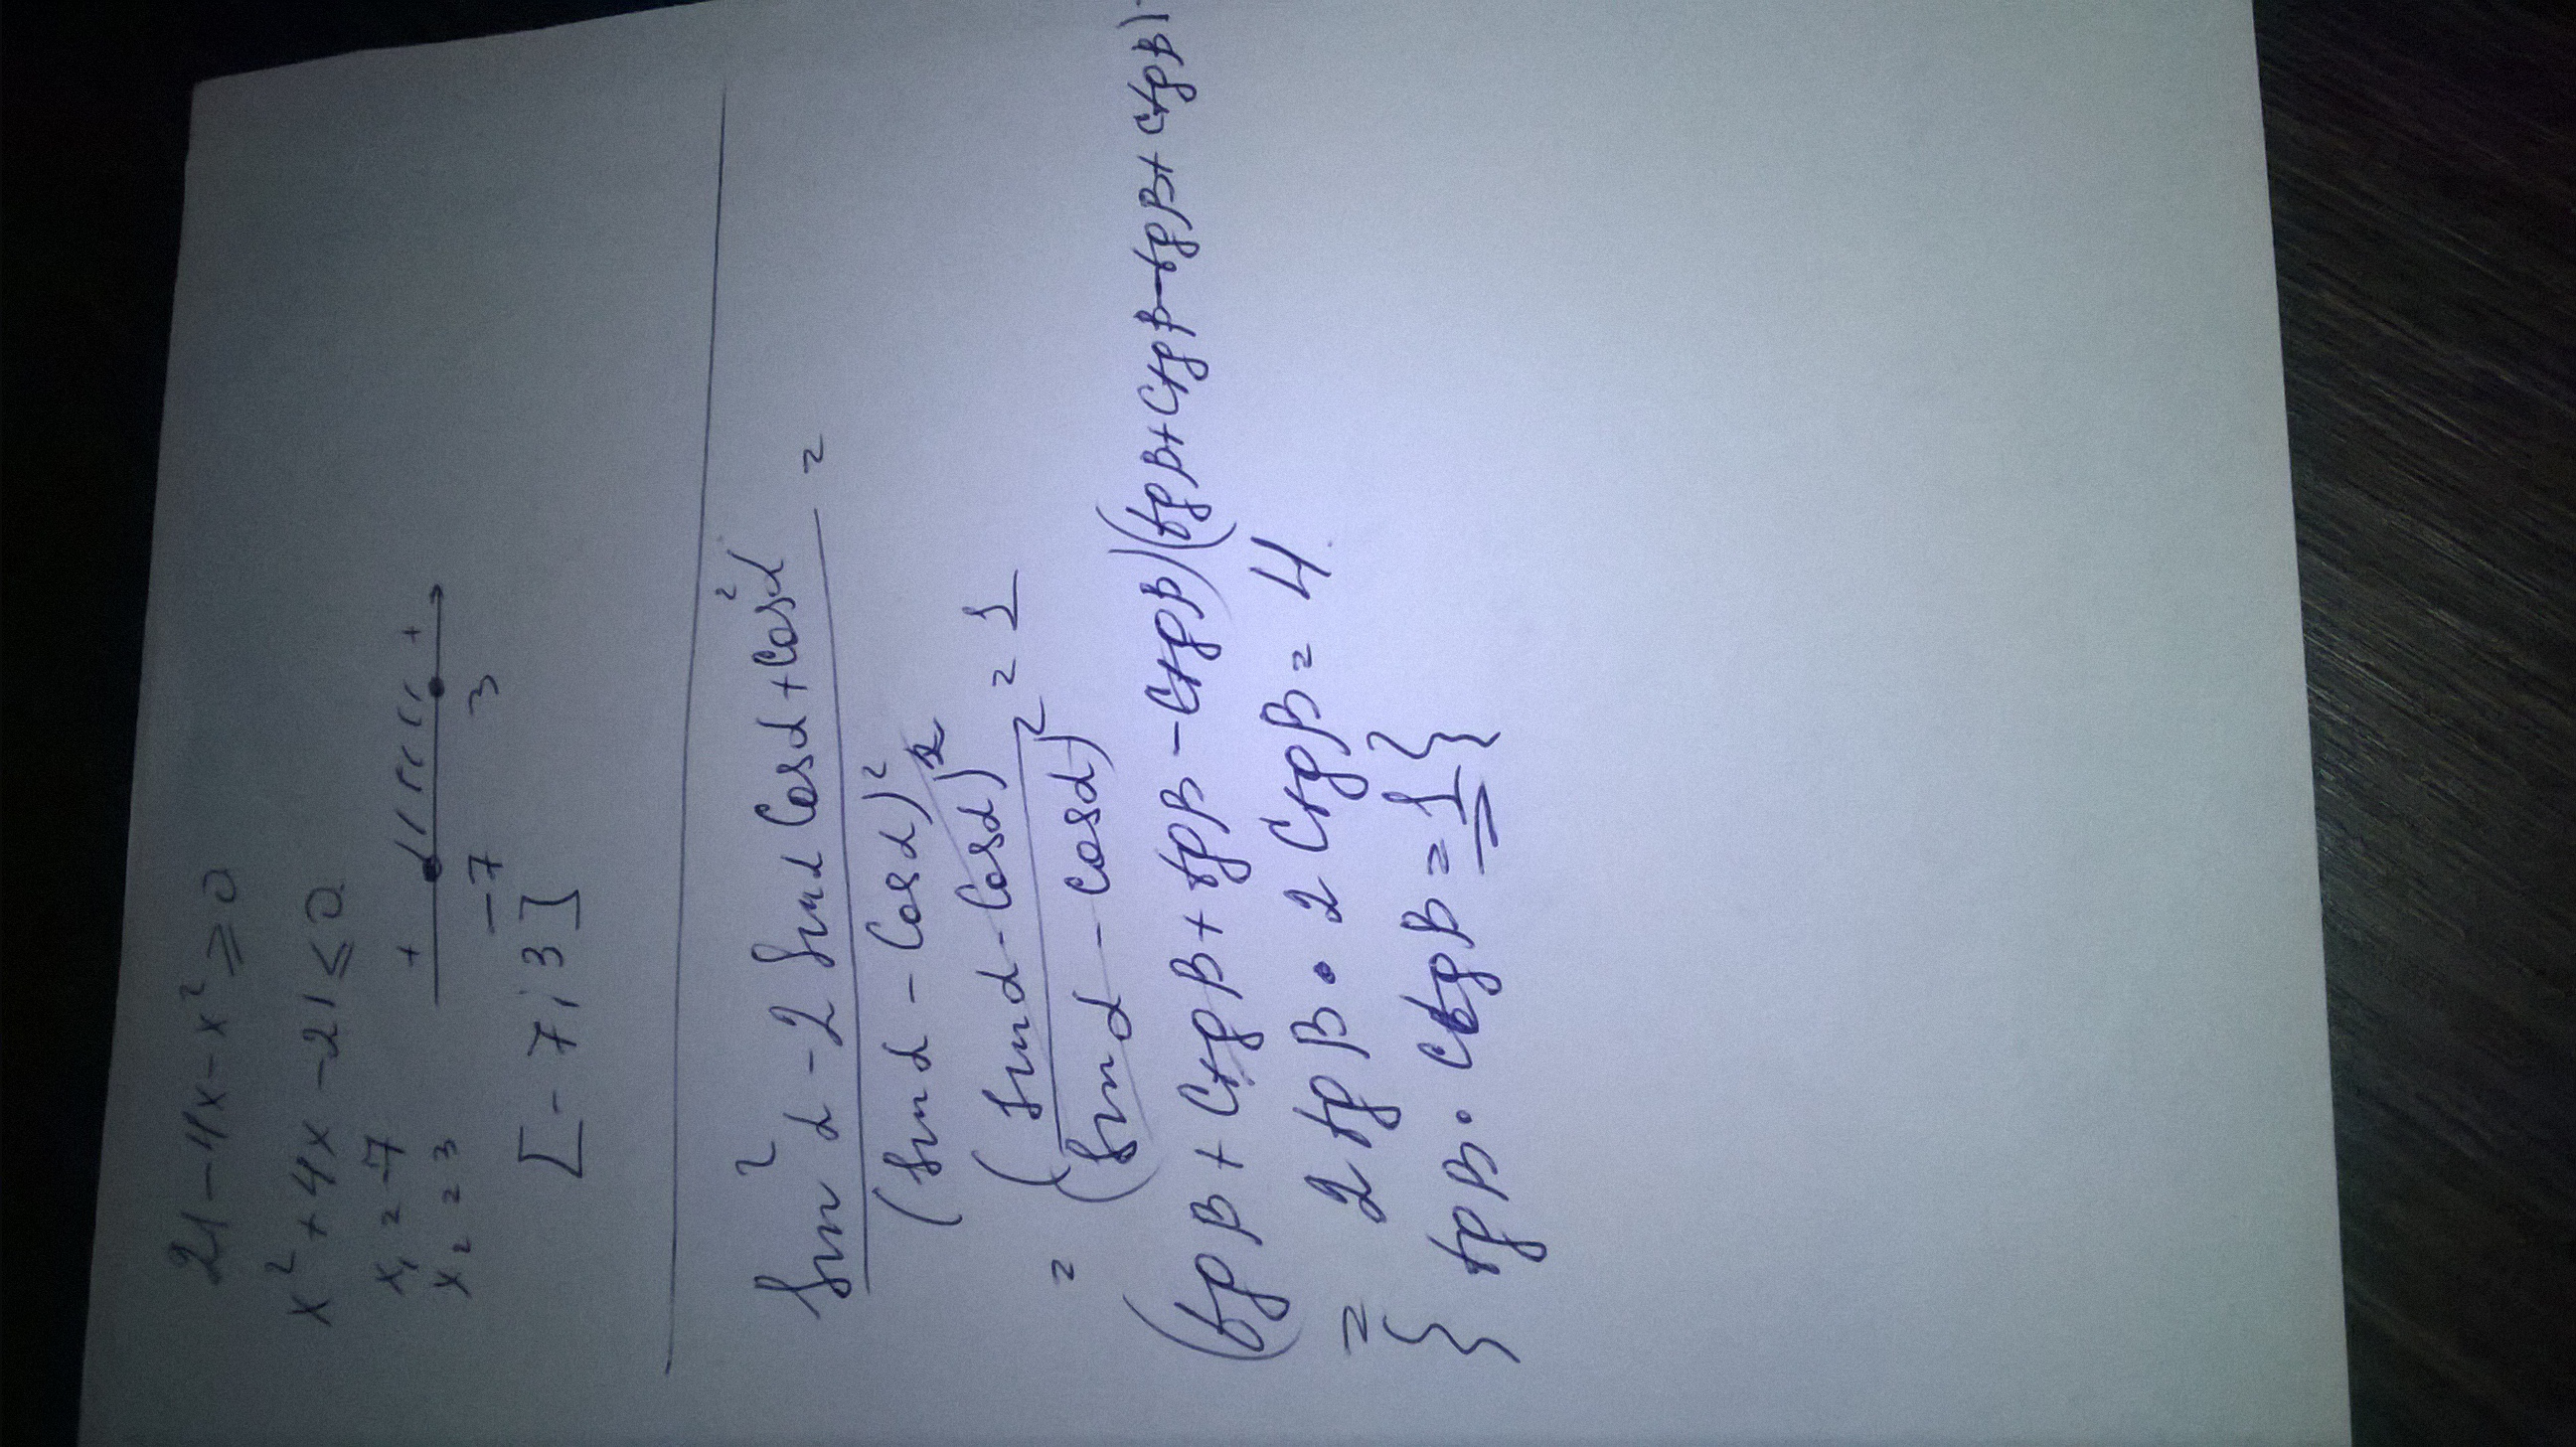 21-4x-x²≥0
x²+4x-21≤0
x₁=-7
x₂=3
+ +
-7 3
[-7;3]
sin²α-2sinαcosα+cos²α =
(sinα-cosα)²
= (sinα-cosα)² = 1
(sinα-cosα)²
(tgβ+ctgβ+tgβ-ctgβ)(tgβ+ctgβ-tgβ+ctgβ)
= 2tgβ·2ctgβ=4
{tgβ·ctgβ=1}